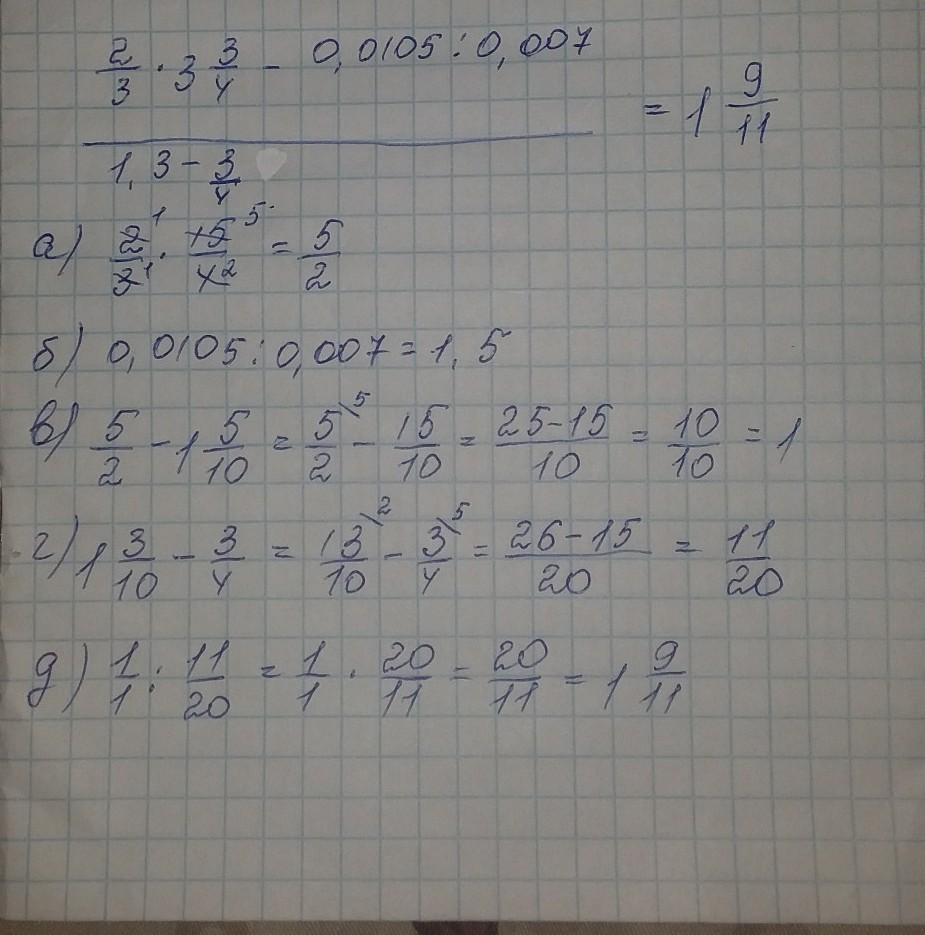 2/3 · 3 3/4 - 0,0105 : 0,007
= 1 9/11
1,3 - 3/4
а) 2¹/3¹ · 15⁵/4² = 5/2
б) 0,0105 : 0,007 = 1,5
в) 5/2 - 1 5/10 = 5\⁵/2 - 15/10 = 25-15/10 = 10/10 = 1
г) 1 3/10 - 3/4 = 13\²/10 - 3\⁵/4 = 26-15/20 = 11/20
д) 1/1 : 11/20 = 1/1 · 20/11 = 20/11 = 1 9/11